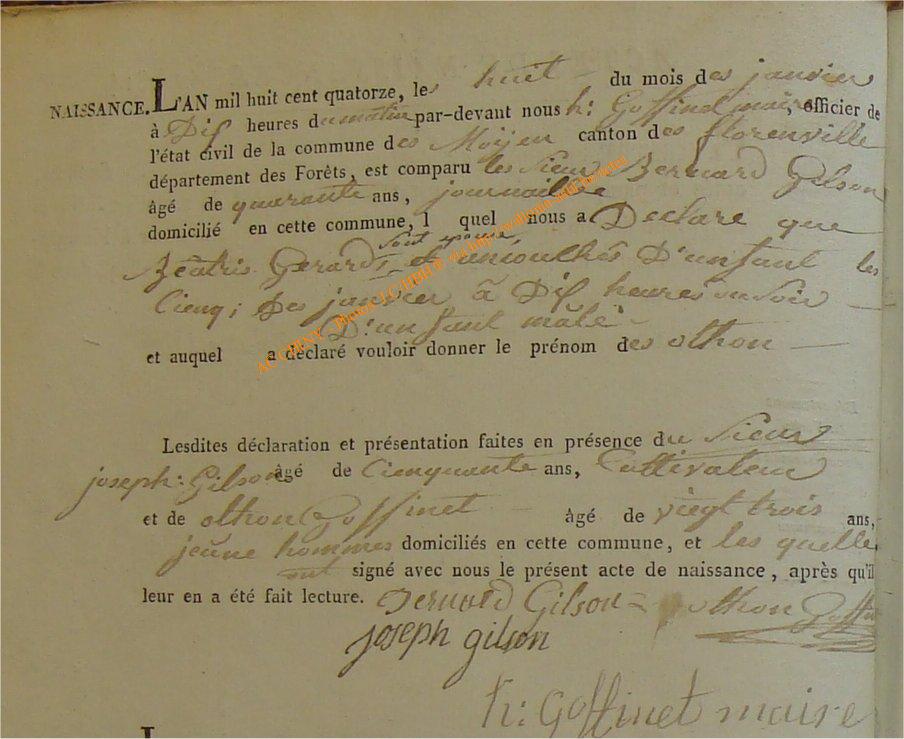 NAISSANCE. L'AN mil huit cent quatorze, les huit du mois des janvier
à Dis heures du matin par-devant nous h: Goffinet maire, officier de
l'état civil de la commune des Moyen canton des florenville
département des Forêts, est comparu les Sieur Bernard Gilson
âgé de quarante ans, journaillie
domicilié en cette commune, l quel nous a Declare que
sont epouse
Béatris Gerard, et ancoulhés D'un fant les
Cienq; Des janvier à Dis heures du Soir
D'un fant male
et auquel a déclaré vouloir donner le prénom des othon
Lesdites déclaration et présentation faites en présence du Sieur
joseph: Gilson âgé de Cienquante ans, Cultivateur
et de othon Goffinet âgé de viegt trois ans,
jeune hommes domiciliés en cette commune, et les quelle
ont signé avec nous le présent acte de naissance, après qu'il
leur en a été fait lecture. Bernard Gilson othon Goffin
joseph gilson
h: Goffinet maire
L